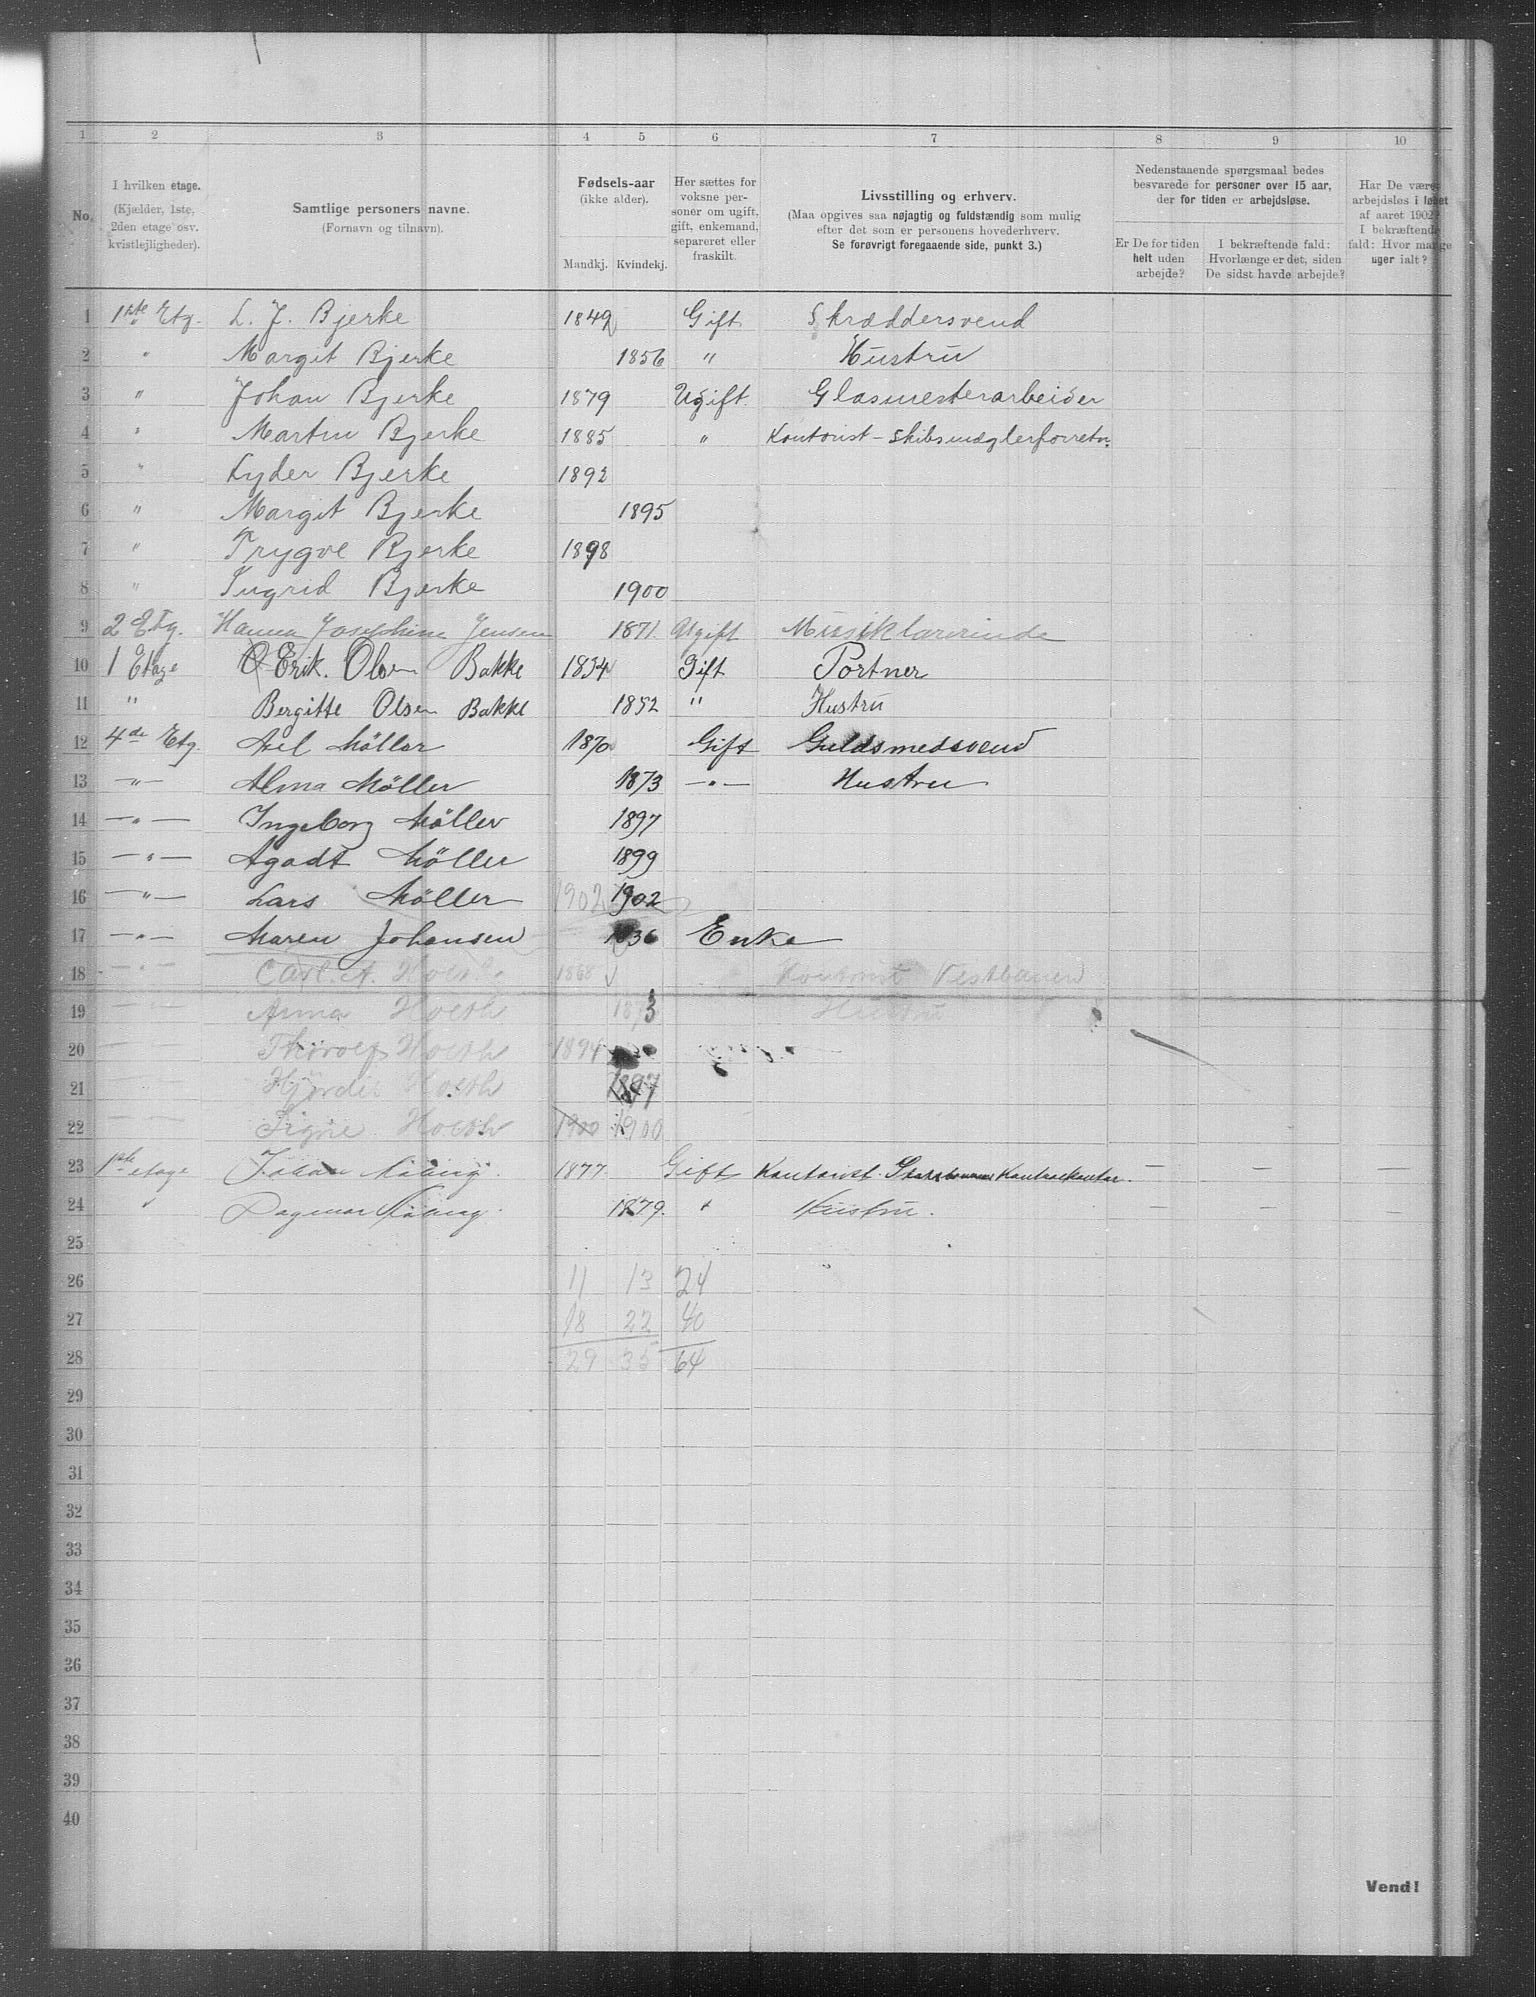 1 2 3 4 5 6 7 8 9 10
No. I hvilken etage. (Kjælder, 1ste, 2den etage osv. kvistlejligheder).
Samtlige personers navne. (Fornavn og tilnavn).
Fødsels-aar (ikke alder). Mandkj. Kvindekj.
Her sættes for voksne personer om ugift, gift, enkemand, separeret eller fraskilt.
Livsstilling og erhverv. (Maa opgives saa nøjagtig og fuldstændig som mulig efter det som er personens hovederhverv. Se forøvrigt foregaaende side, punkt 3.)
Nedenstaaende spørgsmaal bedes besvarede for personer over 15 aar, der for tiden er arbejdsløse.
Er De for tiden helt uden arbejde?
I bekræftende fald: Hvorlænge er det, siden De sidst havde arbejde?
Har De været arbejdsløs i løbet af aaret 1902? I bekræftende fald: Hvor mange uger ialt?
1 1ste Etg. L. J. Bjerke 1849 Gift Skræddersvend
2 " Margit Bjerke 1856 " Hustru
3 " Johan Bjerke 1879 Ugift. Glasmesterarbeider
4 " Martin Bjerke 1885 " Kontorist - Skibsmæglerforretn.
5 " Lyder Bjerke 1892
6 " Margit Bjerke 1895
7 " Trygve Bjerke 1898
8 " Ingrid Bjerke 1900
9 2 Etg. Hanna Josephine Jensen 1871. Ugift Musiklærerinde
10 1 Etage Erik. Olsen Bakke 1834 Gift Portner
11 " Bergitte Olsen Bakke 1852 " Hustru
12 4de Etg. Axel Möller 1870 Gift Guldsmedsvend
13 —"— Alma Möller 1873 —"— Hustru
14 —"— Ingeborg Möller 1897
15 —"— Agodt Möller 1899
16 —"— Lars Möller 1902 1902
17 —"— Maren Johansen 1836 Enke
18 —"— Carl. A. Hoeth 1868 Kontorist Vestbanen
19 — — Anna Hoeth 1873 Hustru
20 — — Thorolf Hoeth 1894
21 — — Hjördis Hoeth 1897
22 — — Signe Hoeth 1900 1900
23 1ste etage Johan 1877 Gift Kontorist. Statsbanernes Kontrolkontor. — — —
24 " Dagmar 1879. " Hustru. — — —
25
26 11 13 24
27 18 22 40
28 29 35 64
29
30
31
32
33
34
35
36
37
38
39
40
Vend!